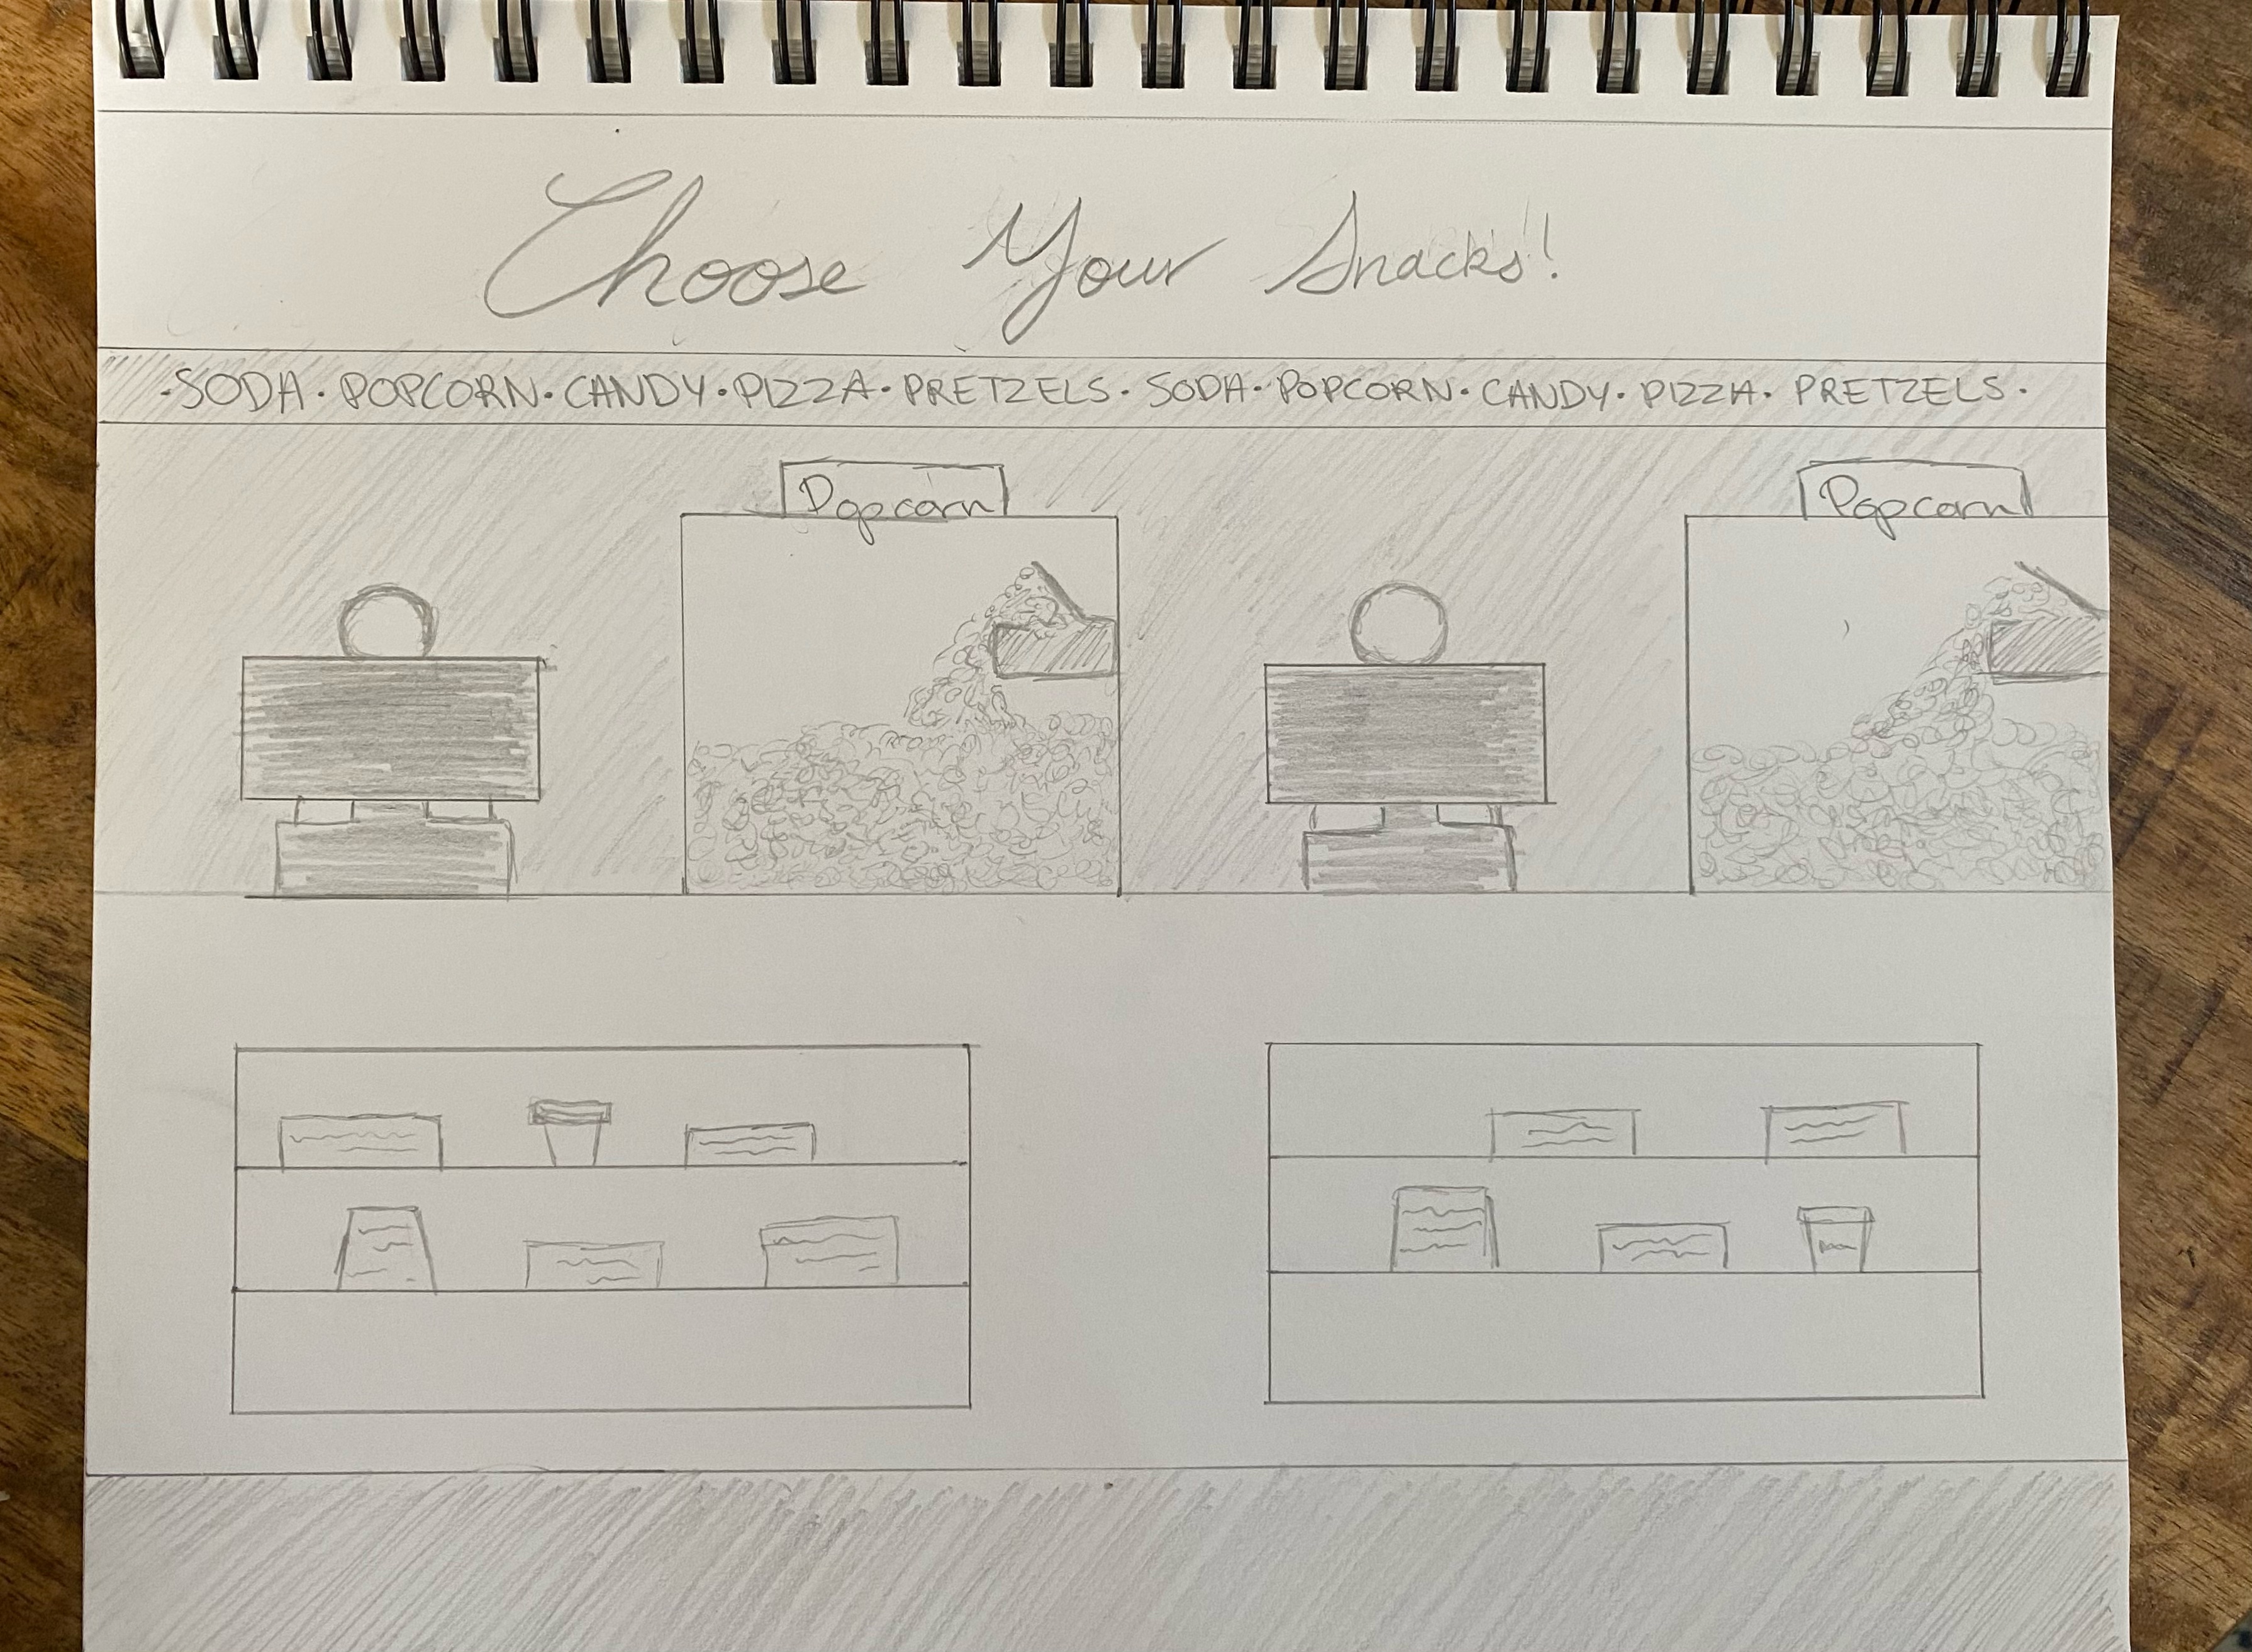 Choose Your Snacks!
·SODA·POPCORN·CANDY·PIZZA·PRETZELS·SODA·POPCORN·CANDY·PIZZA·PRETZELS·
Popcorn
Popcorn